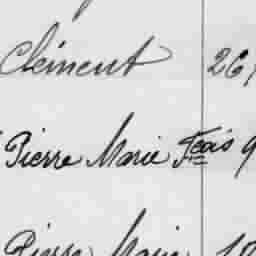 Clément 26
Pierre Marie Fcois 9
Pierre Marie 10